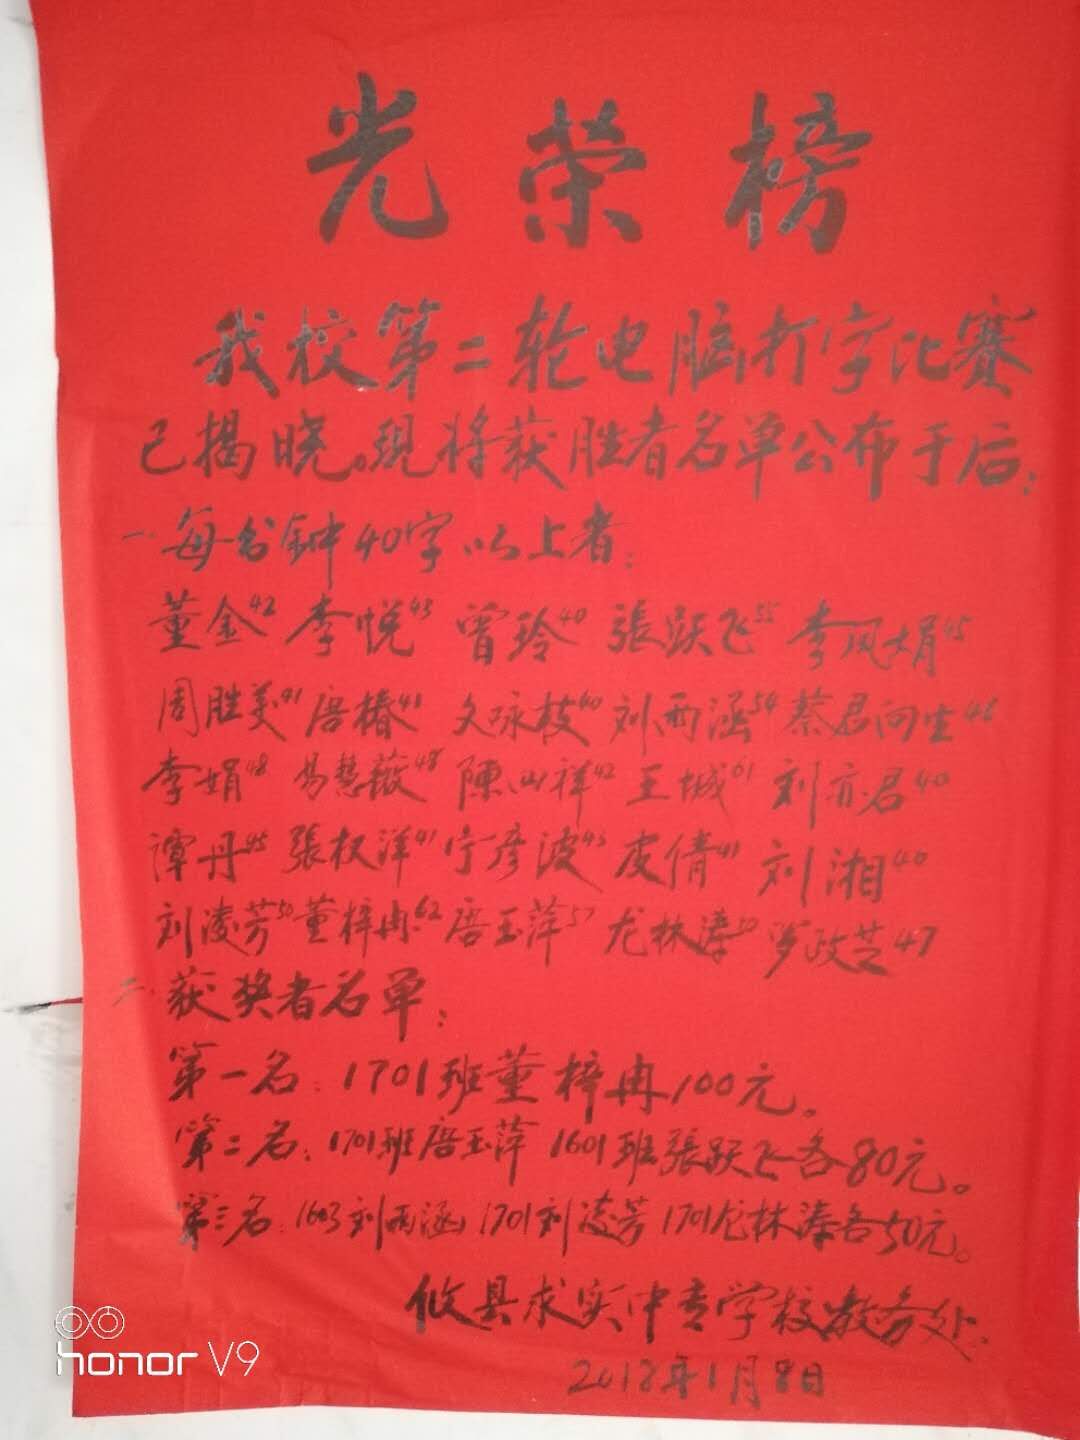 光荣榜
我校第二轮电脑打字比赛
已揭晓。现将获胜者名单公布于后:
一.每分钟40字以上者:
董金42 李悦43 曾玲40 張跃飞55 李凤娟45
周胜美41 唐椿41 文咏枝60 刘雨涵54 蔡君向生46
李娟48 易慧薇48 陳山祥42 王城61 刘亦君40
谭丹45 張权洋41 宁彦波43 皮倩41 刘湘40
刘凌芳50 董梓冉62 唐玉萍57 龙林溱50 罗政芝47
二.获奖者名单:
第一名:1701班董梓冉100元。
第二名:1701班唐玉萍 1601班張跃飞各80元。
第三名:1603刘雨涵 1701刘凌芳 1701龙林溱各50元。
攸县求实中专学校教务处.
2018年1月8日
honor V9